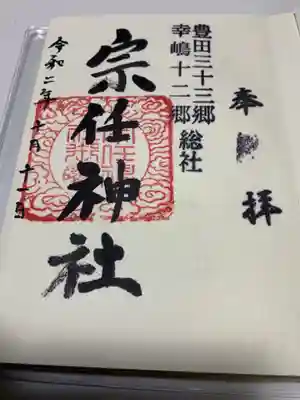 奉拝
豊田三十三郷
幸嶋十二郷総社
宗任神社
令和二年十月十一日